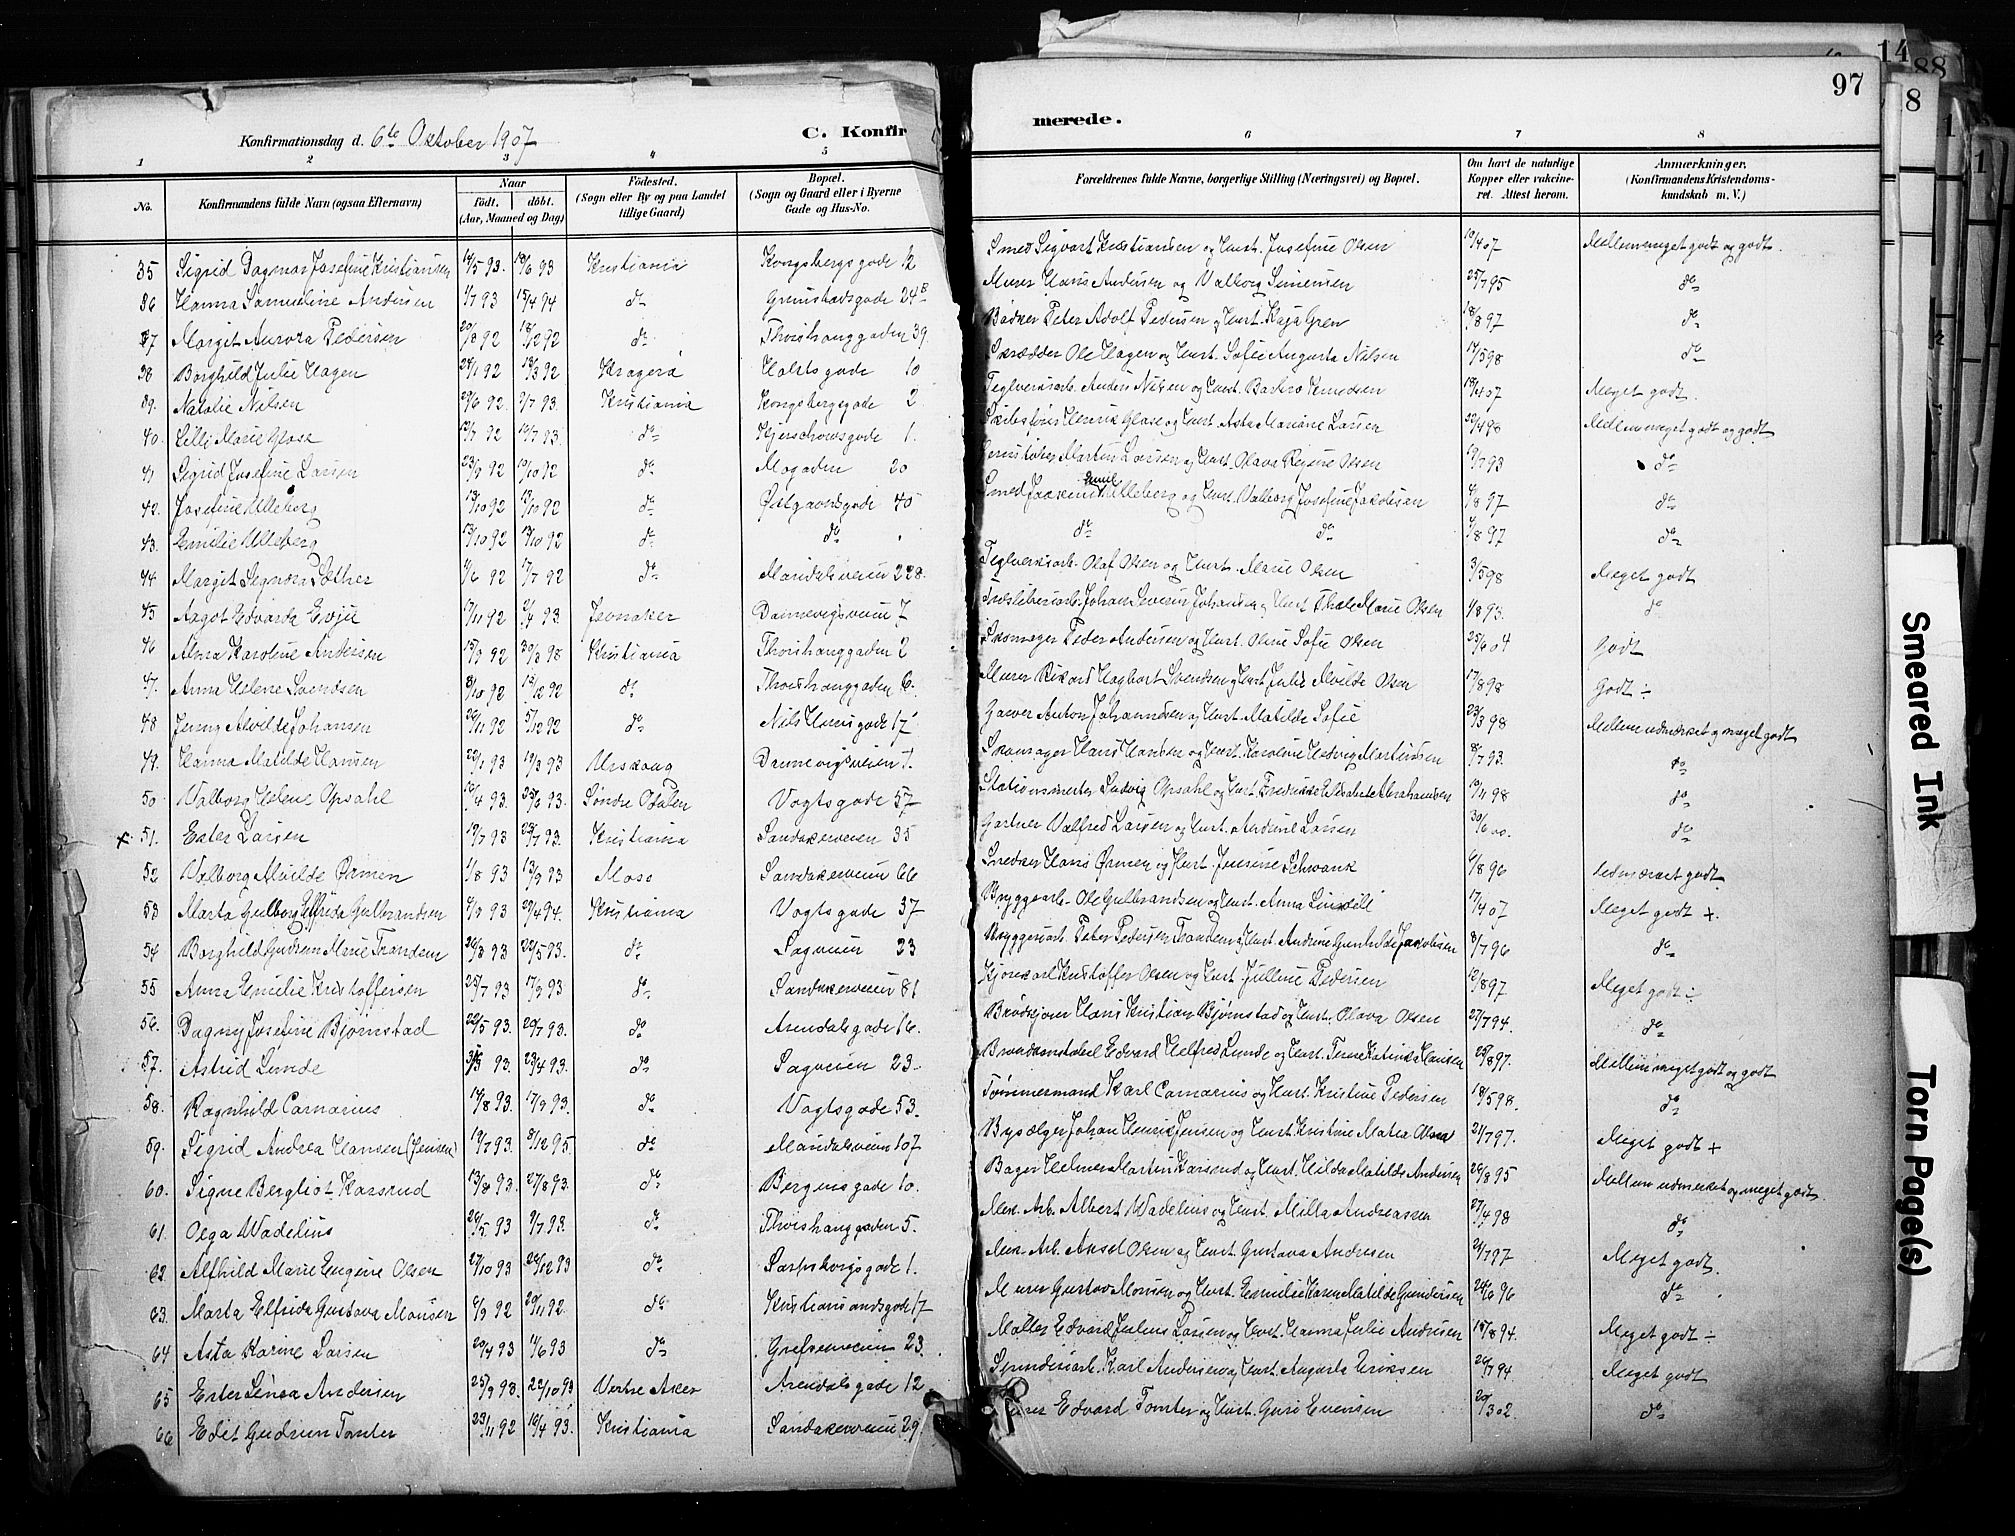 97
14
88
8
1
1
Konfirmationsdag d. 6te Oktober 1907
C. Konfir
merede.
1 2 3 4 5 6 7 8
No.
Konfirmandens fulde Navn (ogsaa Efternavn)
Naar
födt. döbt.
(Aar, Maaned og Dag)
Födested.
(Sogn eller By og paa Landet tillige Gaard)
Bopæl.
(Sogn og Gaard eller i Byerne Gade og Hus-No.
Forældrenes fulde Navne, borgerlige Stilling (Næringsvei) og Bopæl.
Om havt de naturlige Kopper eller vaccineret. Attest herom.
Anmærkninger. (Konfirmandens Kristendomskundskab m. V.)
35 Sigrid Dagmar Josefine Kristiansen 14/5 93. 18/6 93 Kristiania Kongsbergsgade 12 Smed Sigvart Kristiansen og Hust. Josefine Olsen 19/4 07 Mellem meget godt og godt.
36 Hanna Samueline Andersen 1/7 93 15/4 94 do Grimstadsgade 24B Murer Hans Andersen og Valborg Simensen 25/7 95 do
37 Margit Aurora Pedersen 18/12 92 do Thorshauggaden 39. Bödker Peter Adolf Pedersen og Hust. Kaja Gren 18/8 97 do
38 Borghild Julie Hagen 24/1 92 13/3 92 Kragerö Holtsgade 10 Skrædder Ole Hagen og Hust. Sofie Augusta Nilsen 17/5 98 do
39. Natalie Nilsen 29/6 92. 2/7 93. Kristiania Kongsbergsgade 2 Teglverksarb. Anders Nilsen og Hust. Barbro Knudsen 18/4 07 Meget godt.
40. Lilli Marie Glase 12/7 92 16/7 93. do Kjerschowsgade 1. Skibsfører Henrik Glase og Hust. Asta Mariane Larsen 22/4 98 Mellem meget godt og godt
41 Sigrid Josefine Larsen 23/9 92 19/10 92 do Mogaden 20 Martin Larsen og Hust. Olava Regine Olsen 19/7 93 do
42. Josefine Ulleberg 13/10 92 19/10 92 do Østgaardsgade 40 Smed Emil Ulleberg og Hust. Valborg Josefine Jakobsen 4/8 97 do
43. Emilie Ulleberg 13/10 92 19/10 92 do do do do 4/8 97 do
44 Margit Sæther 9/6 92 17/7 92 do Maridalsveien 228. Teglverksarb. Olaf Olsen og Hust. Marie Olsen 3/5 98 Meget godt
45 Aagot Edvarda Evju 17/11 92 2/4 93 Jevnaker Dannevigsveien 7 Træsliberiarb. Johan Severin Johansen og Hust. Thale Marie Olsen 1/8 93. do
46 Alma Karoline Andersen 15/9 92 Kristiania Thorshauggaden 2 Skomager Peder Andersen og Hust. Oline Sofie Olsen 25/6 04 Godt
47. Anna Helene Svendsen 8/10 92 18/12 92 do Thorshauggaden 6. Murer Rikard Hagbart Svendsen og Hust. Julie Alvilde Olsen 17/8 98 Godt ÷
48 Jenny Alvilde Johansen 26/11 92 5/12 92 do Nils Huus gade 17 Garver Anton Johannesen og Hust. Matilde Sofie 23/3 98 Mellem udmærket og meget godt
49. Hanna Matilde Hansen 22/1 93 19/3 93 Urskoug Dannevigsveien 1. Skomager Hans Hansen og Hust. Karoline Hedvig Martinsen 8/7 93. do
50. Valborg Helene Opsahl 16/4 93. 25/6 93. Søndre Odalen Vogtsgade 57 Stationsmester Ludvig Opsahl og Hust. Fredrikke Elisabete Abrahamsen 19/11 98 do
× 51. Ester Larsen 19/7 93 Kristiania Sandakerveien 35 Gartner Valfred Larsen og Hust. Andrine Larsen 30/6 00. do
52 Valborg Alvilde Ørmen 1/8 93 13/9 93 Moss Sandakerveien 66 Snedker Hans Ørmen og Hust. Jensine Schwank 6/8 96 Udmærket godt.
53 Marta Gulborg Elfrida Gulbrandsen 29/4 94. Kristiania Vogtsgade 37 Bryggearb. Ole Gulbrandsen og Hust. Anna 17/4 07 Meget godt +.
54 Borghild Gudrun Marie Trandem 26/3 93 22/5 93. do Sagveien 23 Bryggeriarb. Peter Pedersen Trandem og Hust. Andrine Gunhilde Jakobsen 8/7 96 do
55 Anna Emilie Kristoffersen 25/7 93 17/9 93 do Sandakerveien 81 Kjørekarl Kristoffer Olsen og Hust. Julline Pedersen 12/8 97 Meget godt ÷
56. Dagny Josefine Bjørnstad 22/5 93. 29/7 93. do Arendalsgade 16. Brødkjører Hans Kristian Bjørnstad og Hust. Olava Olsen 27/7 94. do
57. Astrid Lunde 3/3 93. 23/4 93. do Sagveien 23. Brandkonstabel Edvard Helfred Lunde og Hust. Katinka Hansen 25/8 97. Mellem meget godt og godt
58. Ragnhild Carnarius 14/8 93. 17/9 93. do Vogtsgade 53. Tømmermand Karl Carnarius og Hust. Kristine Pedersen 18/5 98. do
59. Sigrid Andrea Hansen (Jensen) 19/7 93. 8/12 95. do Maridalsveien 107 Bysælger Johan Henrik Jensen og Hust. Kristine Matea Olsen 21/7 97. Meget godt +
60. Signe Bergliot Karsrud 13/8 93. 27/8 93. do Bergensgade 10. Bager Helmer Martin Karsrud og Hust. Hilda Matilde Andersen 26/8 95 Mellem udmærket og meget godt.
61. Olga Wadelius 26/5 93 9/7 93. do Thorshauggaden 5. Mek. Arb. Albert Wadelius og Hust. Milla Andreassen 27/4 98 do
62. Alfhild Marie Eugenie Olsen 27/10 93 26/12 93 do Sarpsborgsgade 1. Mek. Arb. Aksel Olsen og Hust. Gustava Andresen 21/7 97 Meget godt.
63. Marta Elfrida Gustava Monsen 6/9 92 20/11 92. do Kristiansandsgade 17 Murer Gustav Monsen og Hust. Emilie Karen Matilde Gundersen 24/6 96 do
64 Asta Karine Larsen 20/4 93 11/6 93 do Grefsenveien 23. Møller Edvard Julius Larsen og Hust. Hanna Julie Andersen 18/8 94. Meget godt ÷
65 Ester Andersen 25/9 93. 22/10 93 Vestre Aker Arendalsgade 12 Spinderiarb. Karl Andersen og Hust. Augusta Eriksen 26/7 94. Meget godt
66 Edit Gudrun Tomter 23/11 92 16/4 93. Kristiania Sandakerveien 29. Edvard Tomter og Hust. Guri Evensen 20/3 02. do
Smeared Ink
Torn Page(s)